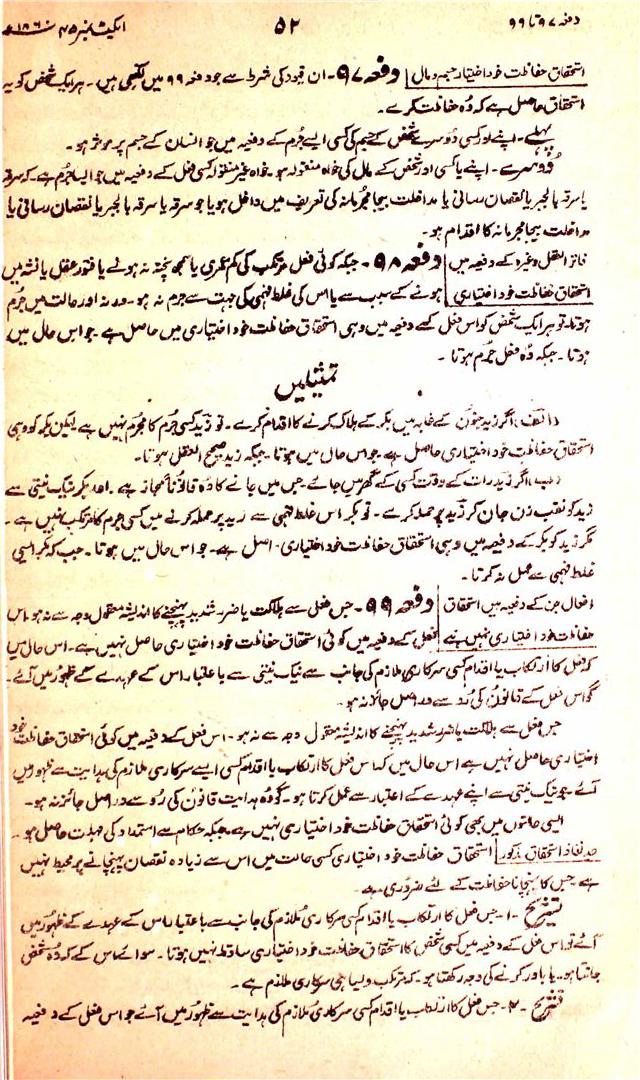 دفعہ ۹۷ تا ۹۹
۵۲
ایکٹ نمبر ۴۵ ۱۸۶۰ء
استحقاق حفاظت خود اختیاری جسم و مال | دفعہ ۹۷ - ان قیود کی شرط سے جو دفعہ ۹۹ میں لکھی ہیں - ہر ایک شخص کو یہ
استحقاق حاصل ہے کہ وہ حفاظت کرے -
پہلے - اپنے اور کسی دوسرے شخص کے جسم کی کسی ایسے جرم کے دفعیہ میں جو انسان کے جسم پر موثر ہو -
دوسرے - اپنے یا کسی اور شخص کے مال کی خواہ منقولہ ہو - خواہ غیر منقولہ کسی فعل کے دفعیہ میں جو ایسا جرم ہے - کہ سرقہ
یا سرقہ بالجبر یا نقصان رسانی یا مداخلت بیجا مجرمانہ کی تعریف میں داخل ہو یا جو سرقہ یا سرقہ بالجبر یا نقصان رسانی یا
مداخلت بیجا مجرمانہ کا اقدام ہو -
فاتر العقل وغیرہ کے دفعیہ میں | دفعہ ۹۸ - جبکہ کوئی فعل مرتکب کی کم عمری یا سمجھ پختہ نہ ہونے یا فتور عقل یا نشہ میں
استحقاق حفاظت خود اختیاری | ہونے کے سبب سے یا اس کی غلط فہمی کی جہت سے جرم نہ ہو - ورنہ اور حالت میں جرم
ہوتا - تو ہر ایک شخص کو اس فعل کے دفعیہ میں وہی استحقاق حفاظت خود اختیاری میں حاصل ہے - جو اس حال میں
ہوتا - جبکہ وہ فعل جرم ہوتا -
تمثیلیں
(الف) اگر زید جنون کے غلبہ میں بکر کے ہلاک کرنے کا اقدام کرے - تو زید کسی جرم کا مجرم نہیں ہے لیکن بکر کو وہی
استحقاق حفاظت خود اختیاری حاصل ہے - جو اس حال میں ہوتا - جبکہ زید صحیح العقل ہوتا -
(ب) اگر زید رات کے وقت کسی کے گھر میں جائے - جس میں جانے کا وہ قانوناً مجاز ہے - اور بکر نیک نیتی سے
زید کو نقب زن جان کر زید پر حملہ کرے - تو بکر اس غلط فہمی سے زید پر حملہ کرنے میں کسی جرم کا مرتکب نہیں ہے -
مگر زید کو بکر کے دفعیہ میں وہی استحقاق حفاظت خود اختیاری حاصل ہے - جو اس حال میں ہوتا - جب کہ بکر ایسی
غلط فہمی سے عمل نہ کرتا -
افعال جن کے دفعیہ میں استحقاق | دفعہ ۹۹ - جس فعل سے ہلاکت یا ضرر شدید پہنچنے کا اندیشہ معقول وجہ سے نہ ہو اس
حفاظت خود اختیاری نہیں ہے | فعل کے دفعیہ میں کوئی استحقاق حفاظت خود اختیاری حاصل نہیں ہے - اس حال میں
کہ فعل کا ارتکاب یا اقدام کسی سرکاری ملازم کی جانب سے نیک نیتی سے باعتبار اس کے عہدے کے ظہور میں آئے -
گو اس فعل کے قانون کی رُو سے در اصل جائز نہ ہو -
جس فعل سے ہلاکت یا ضرر شدید پہنچنے کا اندیشہ معقول وجہ سے نہ ہو - اس فعل کے دفعیہ میں کوئی استحقاق حفاظت خود
اختیاری حاصل نہیں ہے اس حال میں کہ اس فعل کا ارتکاب یا اقدام کسی ایسے سرکاری ملازم کی ہدایت سے ظہور میں
آئے - جو نیک نیتی سے اپنے عہدے کے اعتبار سے عمل کرتا ہو - گو وہ ہدایت قانون کی رُو سے در اصل جائز نہ ہو -
ایسی حالتوں میں بھی کوئی استحقاق حفاظت خود اختیاری نہیں ہے جبکہ حکام سے استمداد کی مہلت حاصل ہو -
حد نفاذ استحقاق مذکور | استحقاق حفاظت خود اختیاری کسی حالت میں اس سے زیادہ نقصان پہنچانے پر محیط نہیں
ہے جس کا پہنچانا حفاظت کے لئے ضروری ہے -
تشریح - ۱ - جس فعل کا ارتکاب یا اقدام کسی سرکاری ملازم کی جانب سے باعتبار اس کے عہدے کے ظہور میں
آئے تو اس فعل کے دفعیہ میں کسی شخص کا استحقاق حفاظت خود اختیاری ساقط نہیں ہوتا - سوائے اس کے کہ وہ شخص
جانتا ہو - یا باور کرنے کی وجہ رکھتا ہو - کہ مرتکب ویسا ہی سرکاری ملازم ہے -
تشریح - ۲ - جس فعل کا ارتکاب یا اقدام کسی سرکاری ملازم کی ہدایت سے ظہور میں آئے جو اس فعل کے دفعیہ